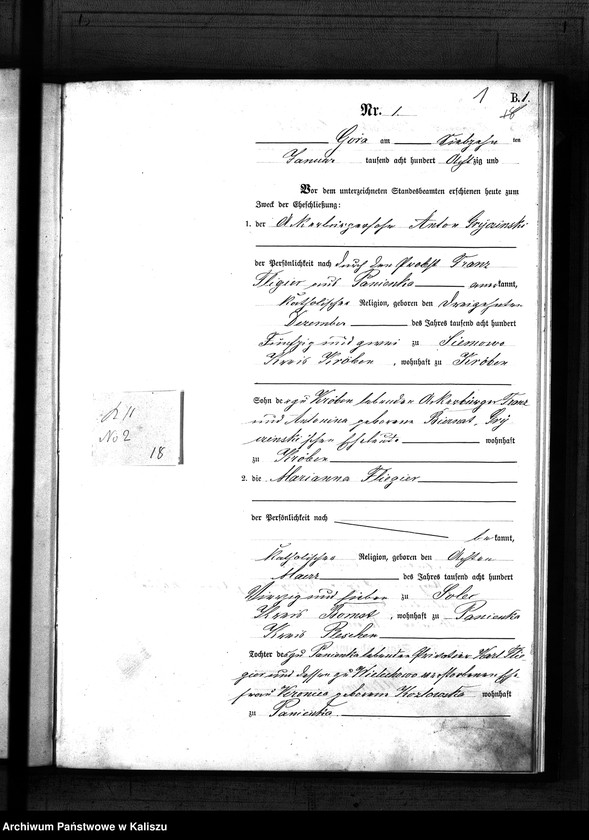 1 B. 1.
18
Nr. 1.
Gora am Siebzehn ten
Januar tausend acht hundert Achtzig und
Vor dem unterzeichneten Standesbeamten erschienen heute zum
Zweck der Eheschließung:
1. der Ackerbürgersohn Anton
der Persönlichkeit nach durch den Probst Franz
Fligier aus Panienka anerkannt,
katholischer Religion, geboren den dreizehnten
Dezember des Jahres tausend acht hundert
Fünfzig und zwei zu Siemowo
Kreis Kröben, wohnhaft zu Kröben
Sohn des zu Kröben lebenden Ackerbürger Franz
und Antonina geborene Biernat
Eheleute wohnhaft
zu Kröben
2. die Marianna Fligier
der Persönlichkeit nach
bekannt,
katholischer Religion, geboren den Achten
Maerz des Jahres tausend acht hundert
Vierzig und sieben zu
Kreis Bomst, wohnhaft zu Panienka
Kreis Pleschen
Tochter des zu Panienka lebenden Privatier Karl Fli-
gier und dessen zu Wielichowo verstorbenen Ehe-
frau Veronica geborene Kozlowska wohnhaft
zu Panienka
No 2
18
Archiwum Państwowe w Kaliszu